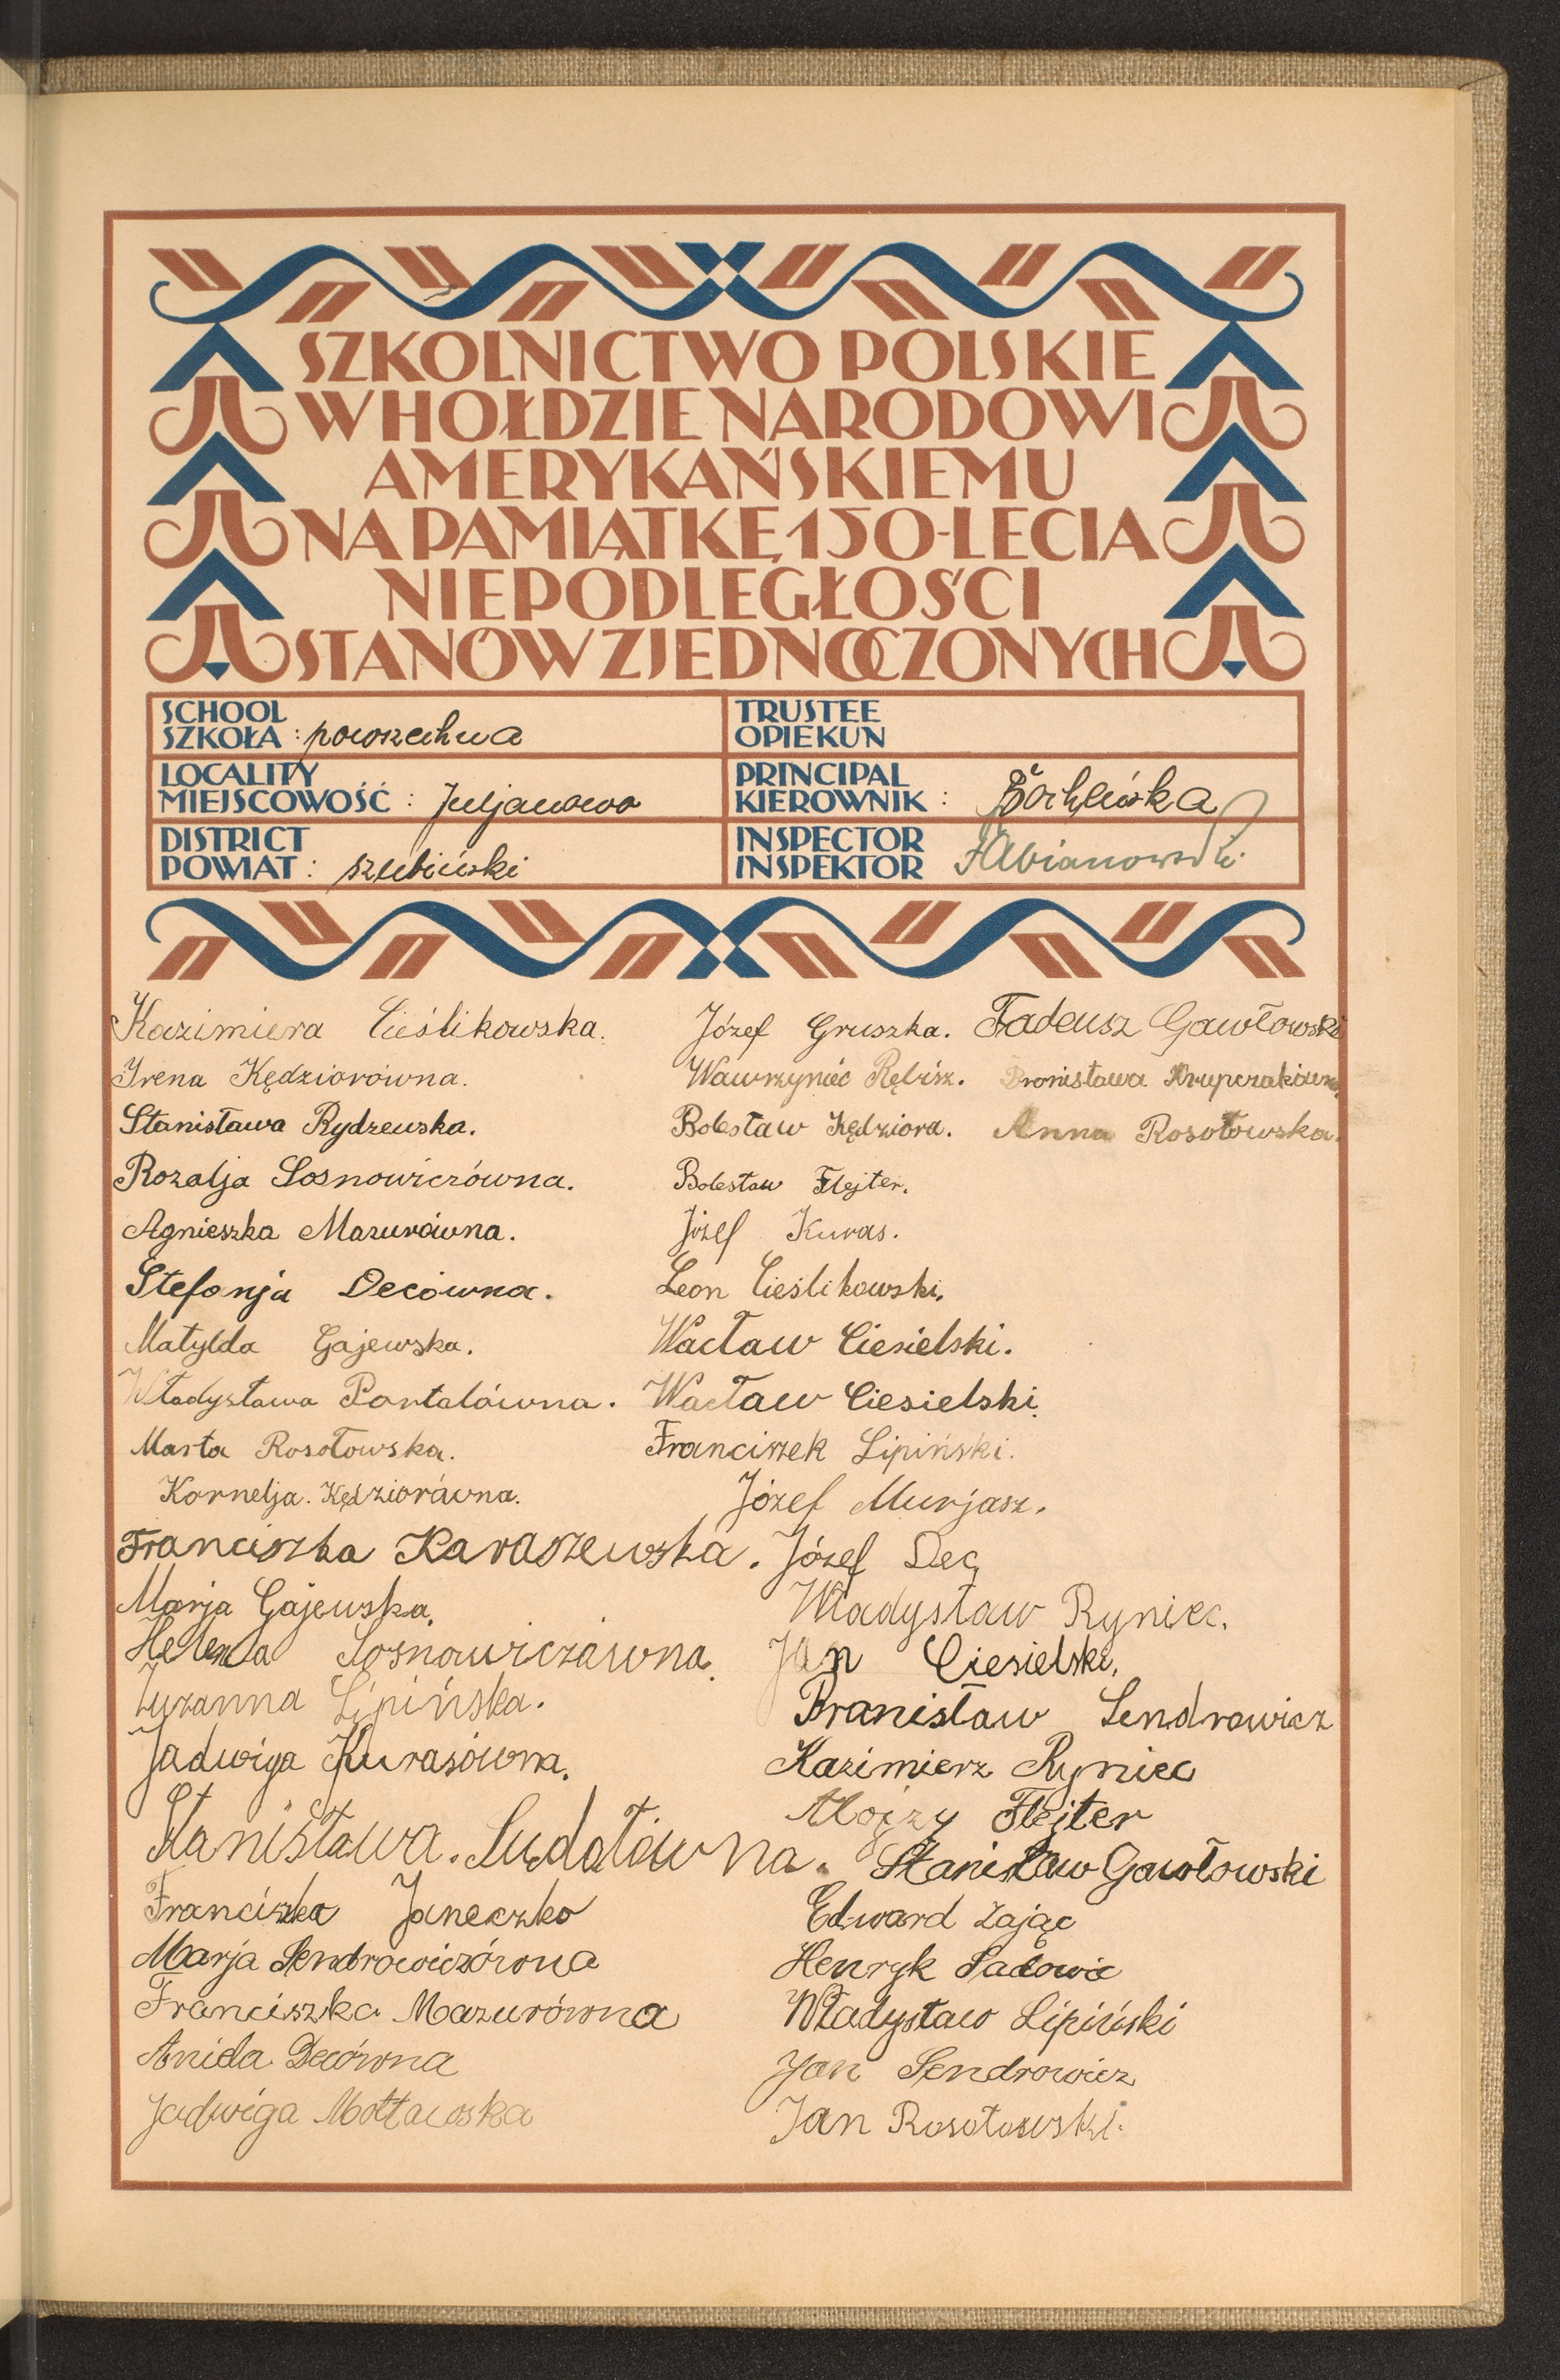 SZKOLNICTWO POLSKIE
W HOŁDZIE NARODOWI
AMERYKAŃSKIEMU
NA PAMIĄTKĘ 150-LECIA
NIEPODLEGŁOŚCI
STANÓW ZJEDNOCZONYCH
SCHOOL
SZKOŁA : powszechna
TRUSTEE
OPIEKUN
LOCALITY
MIEJSCOWOŚĆ : Juljanowo
PRINCIPAL
KIEROWNIK :
DISTRICT
POWIAT : szubiński
INSPECTOR
INSPEKTOR
Kazimiera Cieślikowska.
Irena Kędziorówna.
Stanisława Rydzewska.
Rozalja Sosnowiczówna.
Agnieszka Mazurówna.
Stefanja Decówna.
Matylda Gajewska.
Władysława Pantalówna.
Marta Rosołowska.
Kornelja. Kędziorówna.
Franciszka Karaszewska.
Marja Gajewska.
Helena Sosnowiczówna.
Zuzanna Lipińska.
Jadwiga Kurasówna.
Stanisława. Sudałówna.
Franciszka Janeczko
Marja Sendrowiczówna
Franciszka Mazurówna
Anida Decówna
Jadwiga Mottawska
Józef Gruszka.
Wawrzyniec Rębisz.
Bolesław Kędziora.
Bolesław Flejter.
Józef Kuras.
Leon Cieślikowski.
Wacław Ciesielski.
Wacław Ciesielski.
Franciszek Lipiński.
Józef Murjasz.
Józef Dec
Władysław Ryniec.
Jan Ciesielski.
Branisław Sendrowicz
Kazimierz Ryniec
Alojzy Flejter
Stanisław Gawłowski
Edward Zając
Henryk
Władysław Lipiński
Jan Sendrowicz
Jan Rosołowski.
Tadeusz Gawłowski
Bronisława Krupczakówna.
Anna Rosołowska.